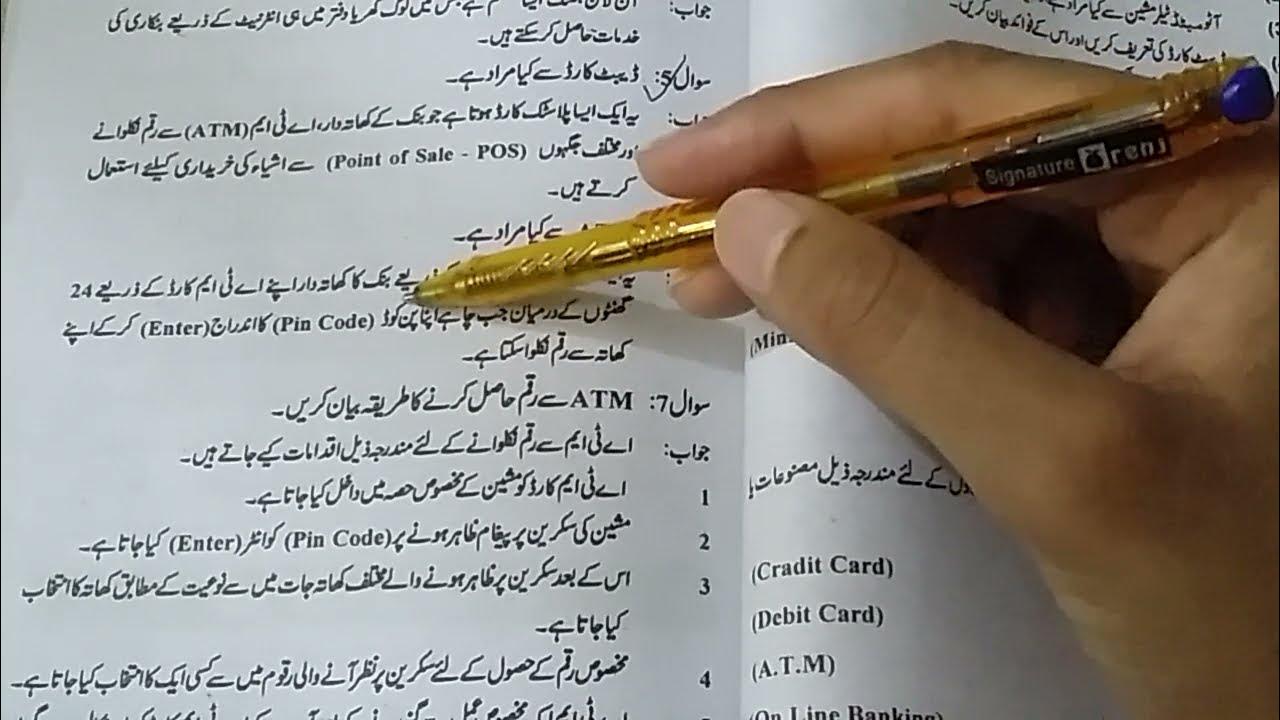 جواب:
خدمات حاصل کر سکتے ہیں۔
سوال 5: ڈیبٹ کارڈ سے کیا مراد ہے۔
یہ ایک ایسا پلاسٹک کارڈ ہوتا ہے جو بنک کے کھاتہ دار، اے ٹی ایم (ATM) سے رقم نکلوانے
اور مختلف جگہوں (Point of Sale - POS) سے اشیاء کی خریداری کیلئے استعمال
کرتے ہیں۔
سے کیا مراد ہے۔
ذریعے بنک کا کھاتہ دار اپنے اے ٹی ایم کارڈ کے ذریعے 24
گھنٹوں کے درمیان جب چاہے اپنا پن کوڈ (Pin Code) کا اندراج (Enter) کر کے اپنے
کھاتہ سے رقم نکلوا سکتا ہے۔
سوال 7: ATM سے رقم حاصل کرنے کا طریقہ بیان کریں۔
جواب: اے ٹی ایم سے رقم نکلوانے کے لئے مندرجہ ذیل اقدامات کیے جاتے ہیں۔
1 اے ٹی ایم کارڈ کو مشین کے مخصوص حصہ میں داخل کیا جاتا ہے۔
2 مشین کی سکرین پر پیغام ظاہر ہونے پر (Pin Code) کو انٹر (Enter) کیا جاتا ہے۔
3 اس کے بعد سکرین پر ظاہر ہونے والے مختلف کھاتہ جات میں سے نوعیت کے مطابق کھاتہ کا انتخاب
کیا جاتا ہے۔
4 مخصوص رقم کے حصول کے لئے سکرین پر نظر آنے والی رقوم میں سے کسی ایک کا انتخاب کیا جاتا ہے۔
آٹومیٹڈ ٹیلر مشین سے کیا مراد ہے
کارڈ کی تعریف کریں اور اس کے فوائد بیان کریں۔
Signature
کے لئے مندرجہ ذیل مصنوعات
(Cradit Card)
(Debit Card)
(A.T.M)
(On Line Banking)